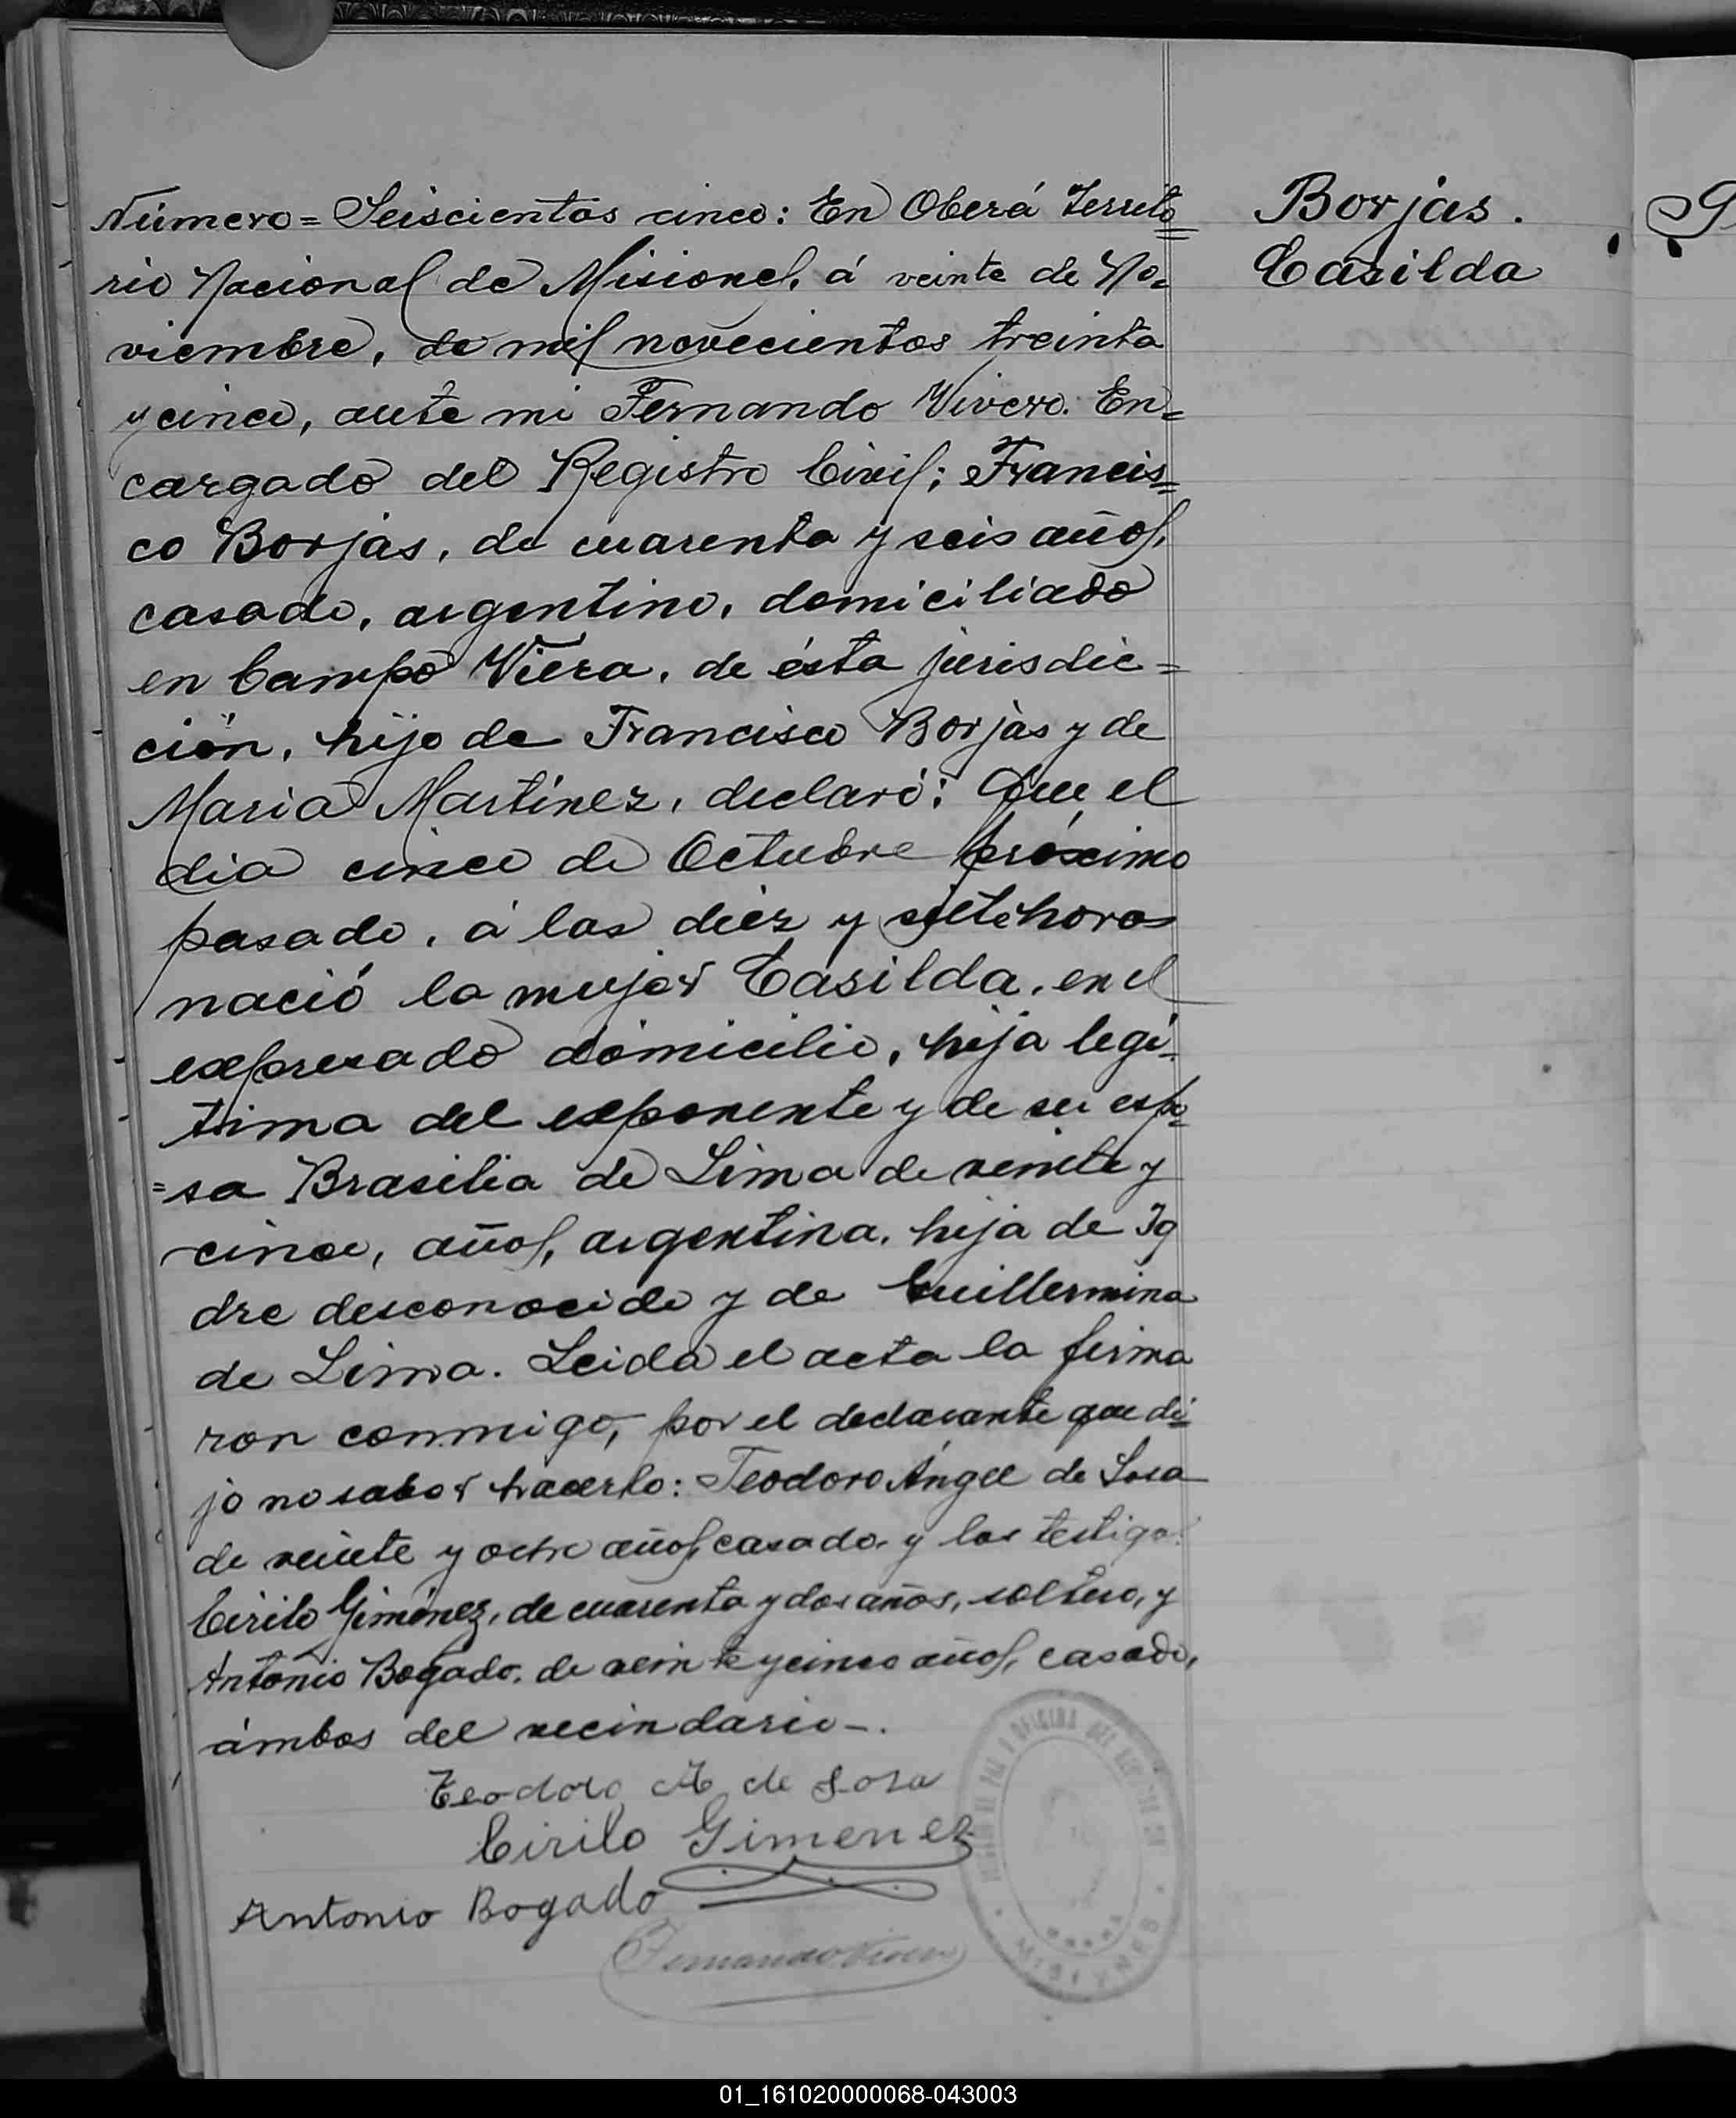 Borjas.
Casilda
Número = Seiscientos cinco: En Oberá Territo
rio Nacional de Misiones, á veinte de No=
viembre, de mil novecientos treinta
y cinco, ante mi Fernando Vivero. En=
cargado del Registro Civil; Francis=
co Borjas, de cuarenta y seis años,
casado, argentino, domiciliado
en Campo Viera, de ésta jurisdic=
ción, hijo de Francisco Borjas y de
Maria Martínez, declaró: Que el
dia cinco de Octubre próximo
pasado, á las diez y siete horas
nació la mujer Casilda, en el
expresado domicilio, hija legí=
tima del exponente y de su espo=
=sa Brasilia de Lima de veinte y
cinco, años, argentina, hija de
dre desconocido y de Guillermina
de Lima. Leida el acta la firma
ron conmigo, por el declarante que di=
jo no saber hacerlo: Teodoro Ángel de Sosa
de veinte y ocho años, casado, y los testigos
Cirilo Giménez, de cuarenta y dos años, soltero, y
Antonio Bogado, de veinte y cinco años, casado,
ámbos del vecindario-.
Teodoro A. de Sosa
Cirilo Gimenez
Antonio Bogado
Fernando Vivero
MISIONES
01_161020000068-043003